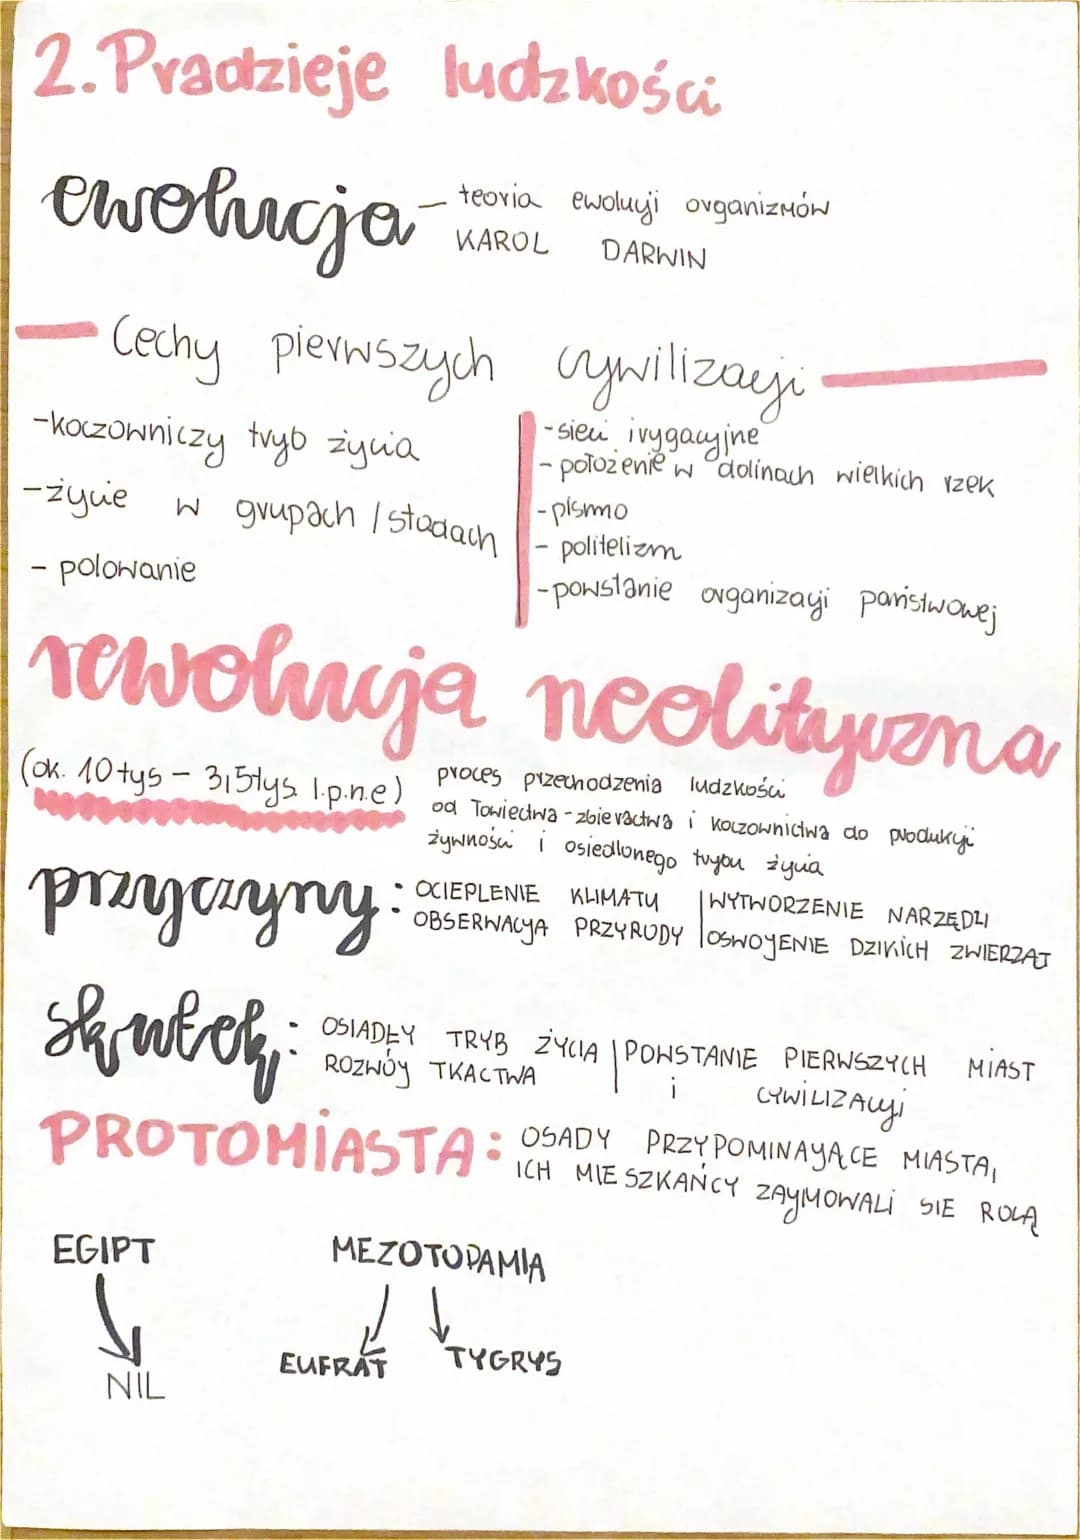 2. Pradzieje ludzkości
ewolucja - teoria ewolucji organizmów
KAROL DARWIN
Cechy pierwszych cywilizacji
-koczowniczy tryb życia
-życie w grupach / stadach
- polowanie
-sieci irygacyjne
- położenie w dolinach wielkich rzek
-pismo
- politelizm
-powstanie organizacji państwowej
rewolucja neolityczna
(ok. 10tys - 3,5tys l.p.n.e)
proces przechodzenia ludzkości
od łowiectwa-zbieractwa i koczownictwa do produkcji
żywności i osiedlonego trybu życia
przyczyny: OCIEPLENIE KLIMATU | WYTWORZENIE NARZĘDZI
OBSERWACJA PRZYRODY | OSWOJENIE DZIKICH ZWIERZĄT
skutek: OSIADŁY TRYB ŻYCIA | POWSTANIE PIERWSZYCH MIAST
ROZWÓJ TKACTWA | i CYWILIZACJI
PROTOMIASTA: OSADY PRZYPOMINAJĄCE MIASTA,
ICH MIESZKAŃCY ZAJMOWALI SIE ROLĄ
EGIPT MEZOTOPAMIA
EUFRAT TYGRYS
NIL